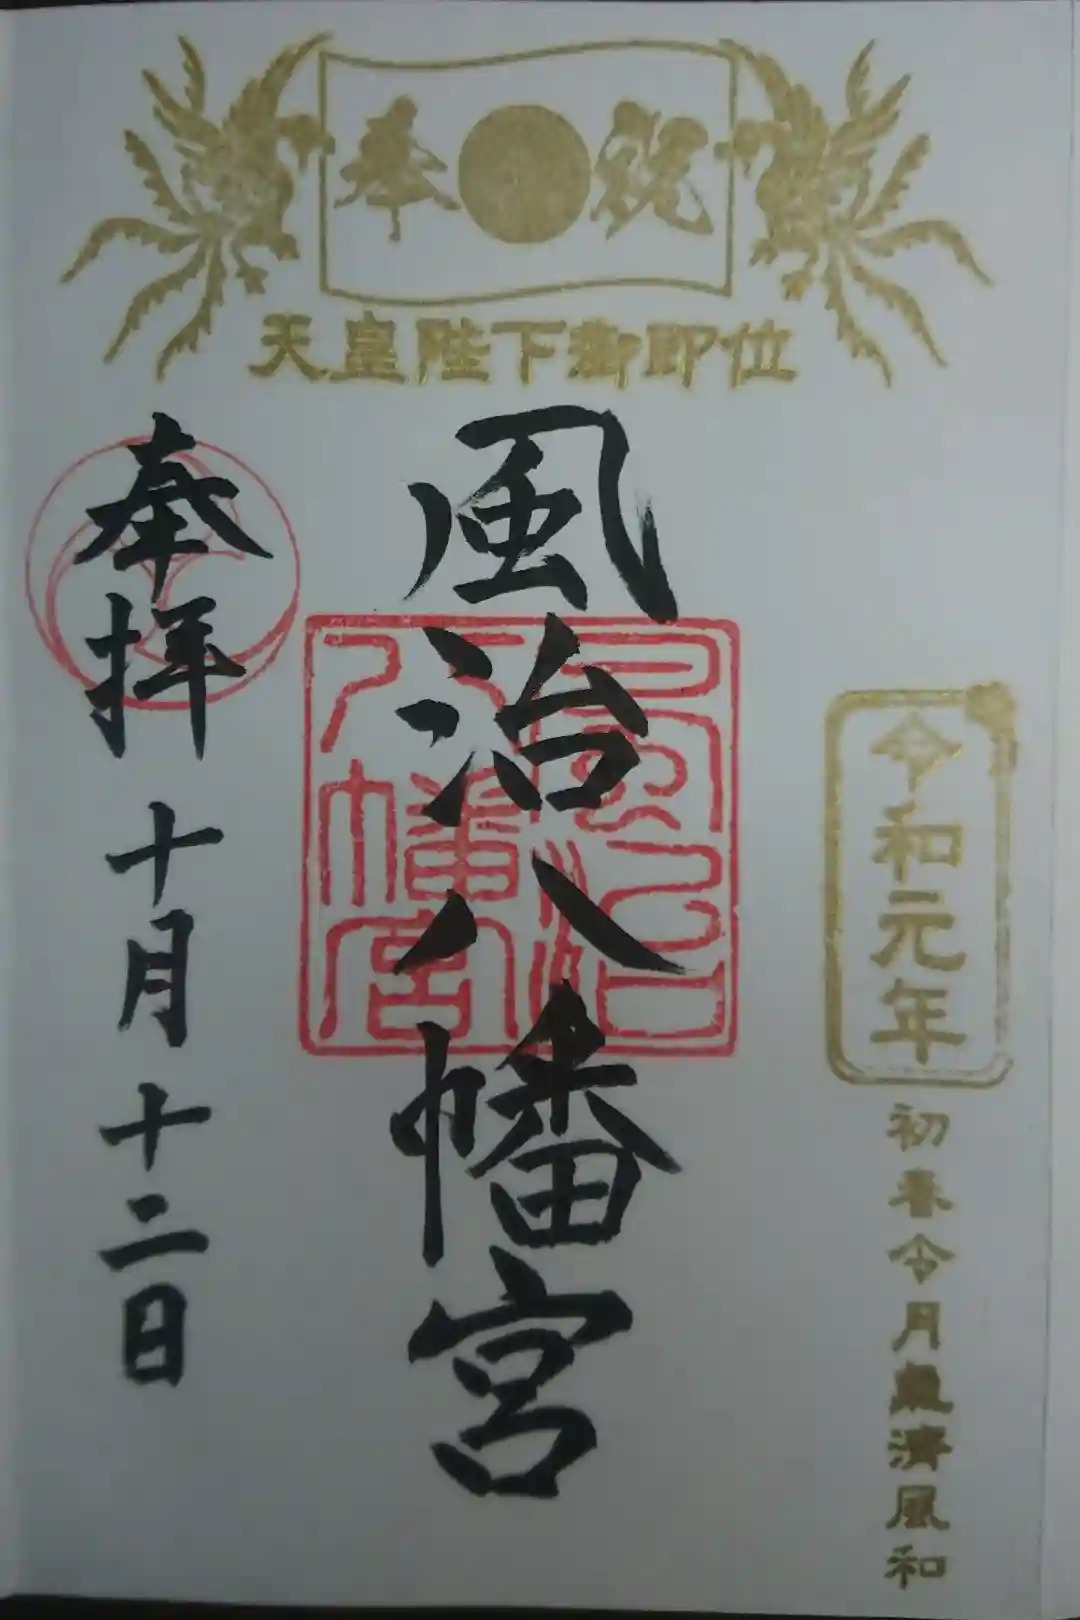 奉祝
天皇陛下御即位
令和元年
初春令月氣淸風和
風治八幡宮
風治八幡宮
奉拝 十月十二日